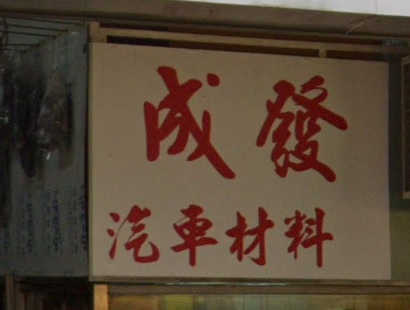 成發
汽車材料